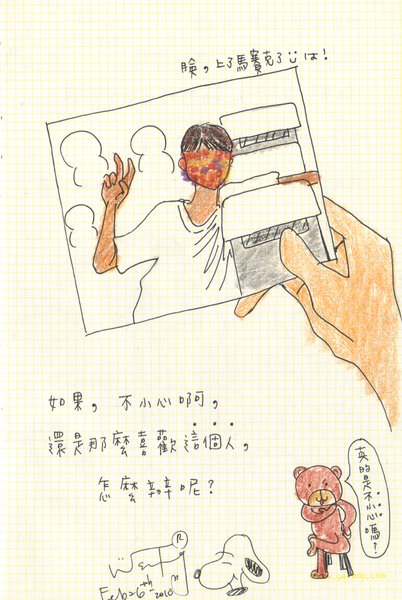 臉，上了馬賽克了üは！
如果，不小心啊，
還是那麼喜歡這個人，
怎麼辦呢？
真的是
不小心
嗎？
Feb 6th 2010